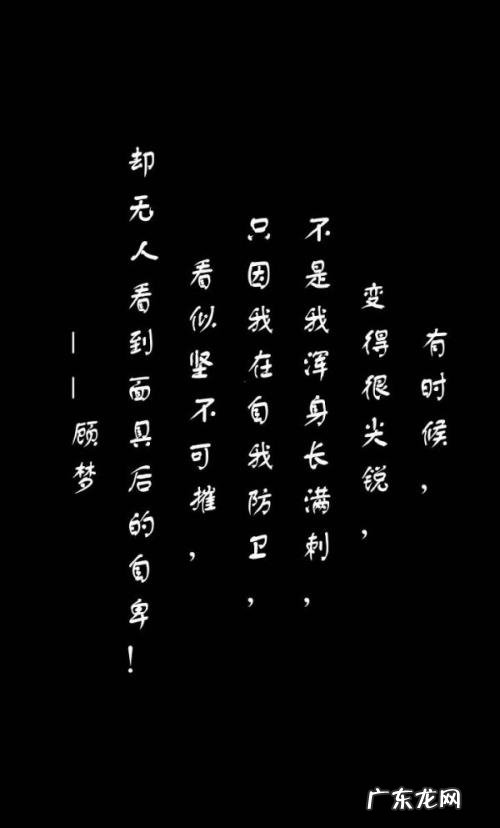 有时候，
变得很尖锐，
不是我浑身长满刺，
只因我在自我防卫，
看似坚不可摧，
却无人看到面具后的自卑！
——顾梦
广东龙网